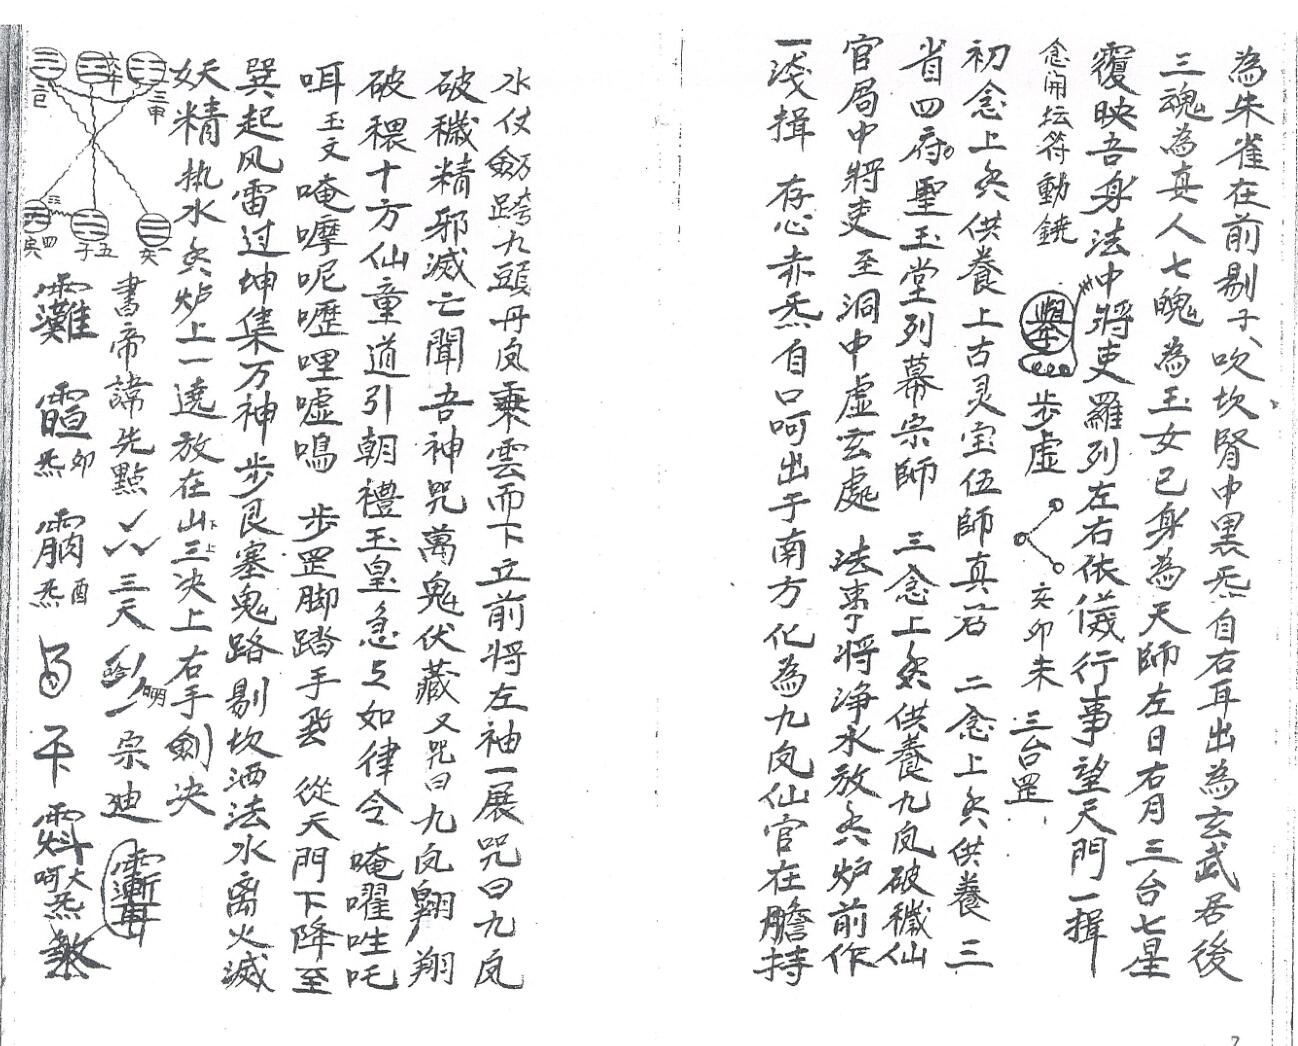 為朱雀在前剔子吹坎腎中黑炁自右耳出為玄武居後
三魂為真人七魄為玉女已身為天師左日右月三台七星
覆映吾身法中將吏羅列左右依儀行事望天門一揖
念開坛符動鐃 步虛 亥卯未 三台罡
初念上香供養上古灵宝伍師真君 二念上香供養 三
省四府聖玉堂列幕宗師 三念上香供養九凤破穢仙
官局中將吏至洞中虛玄處 法事了將净水放香炉前作
一淺揖 存心赤炁自口呵出于南方化為九凤仙官在膽持
水仗劍跨九頭丹凤乘雲而下立前將左袖一展咒曰九凤
破穢精邪滅亡聞吾神咒萬鬼伏藏又咒曰九凤翱翔
破穢十方仙童道引朝禮玉皇急々如律令 唵囉吽吒
呬 玉文 唵嚤呢嚦哩嘘鳴 步罡脚踏手 從天門下降至
巽起风雷过坤集万神步艮塞鬼路剔坎洒法水离火滅
妖精热水香炉上一遶放在山三决上右手劍决
下上
書帝諱先點 三天 宗迪
三巳 六午 三申
四 五子 一亥
灘 炁卯 炁酉 大炁 呵
7